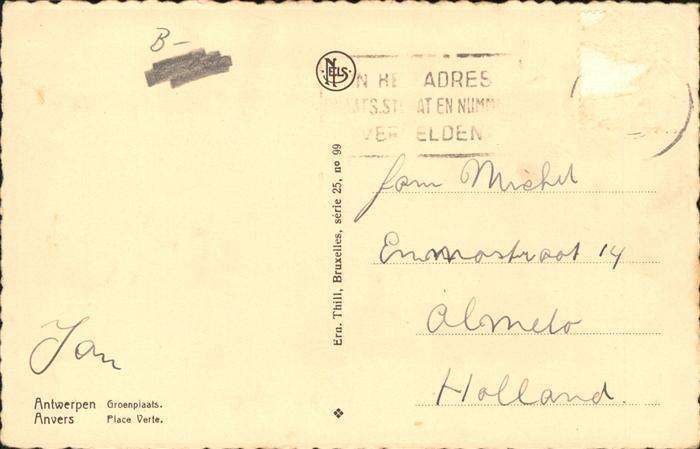 B-
NELS
IN HET ADRES
STRAAT EN NUMMER
VERMELDEN
Ern. Thill, Bruxelles, série 25, no 99
Fam Michel
Emmastraat 14
Almelo
Holland.
Jan
Antwerpen Groenplaats.
Anvers Place Verte.